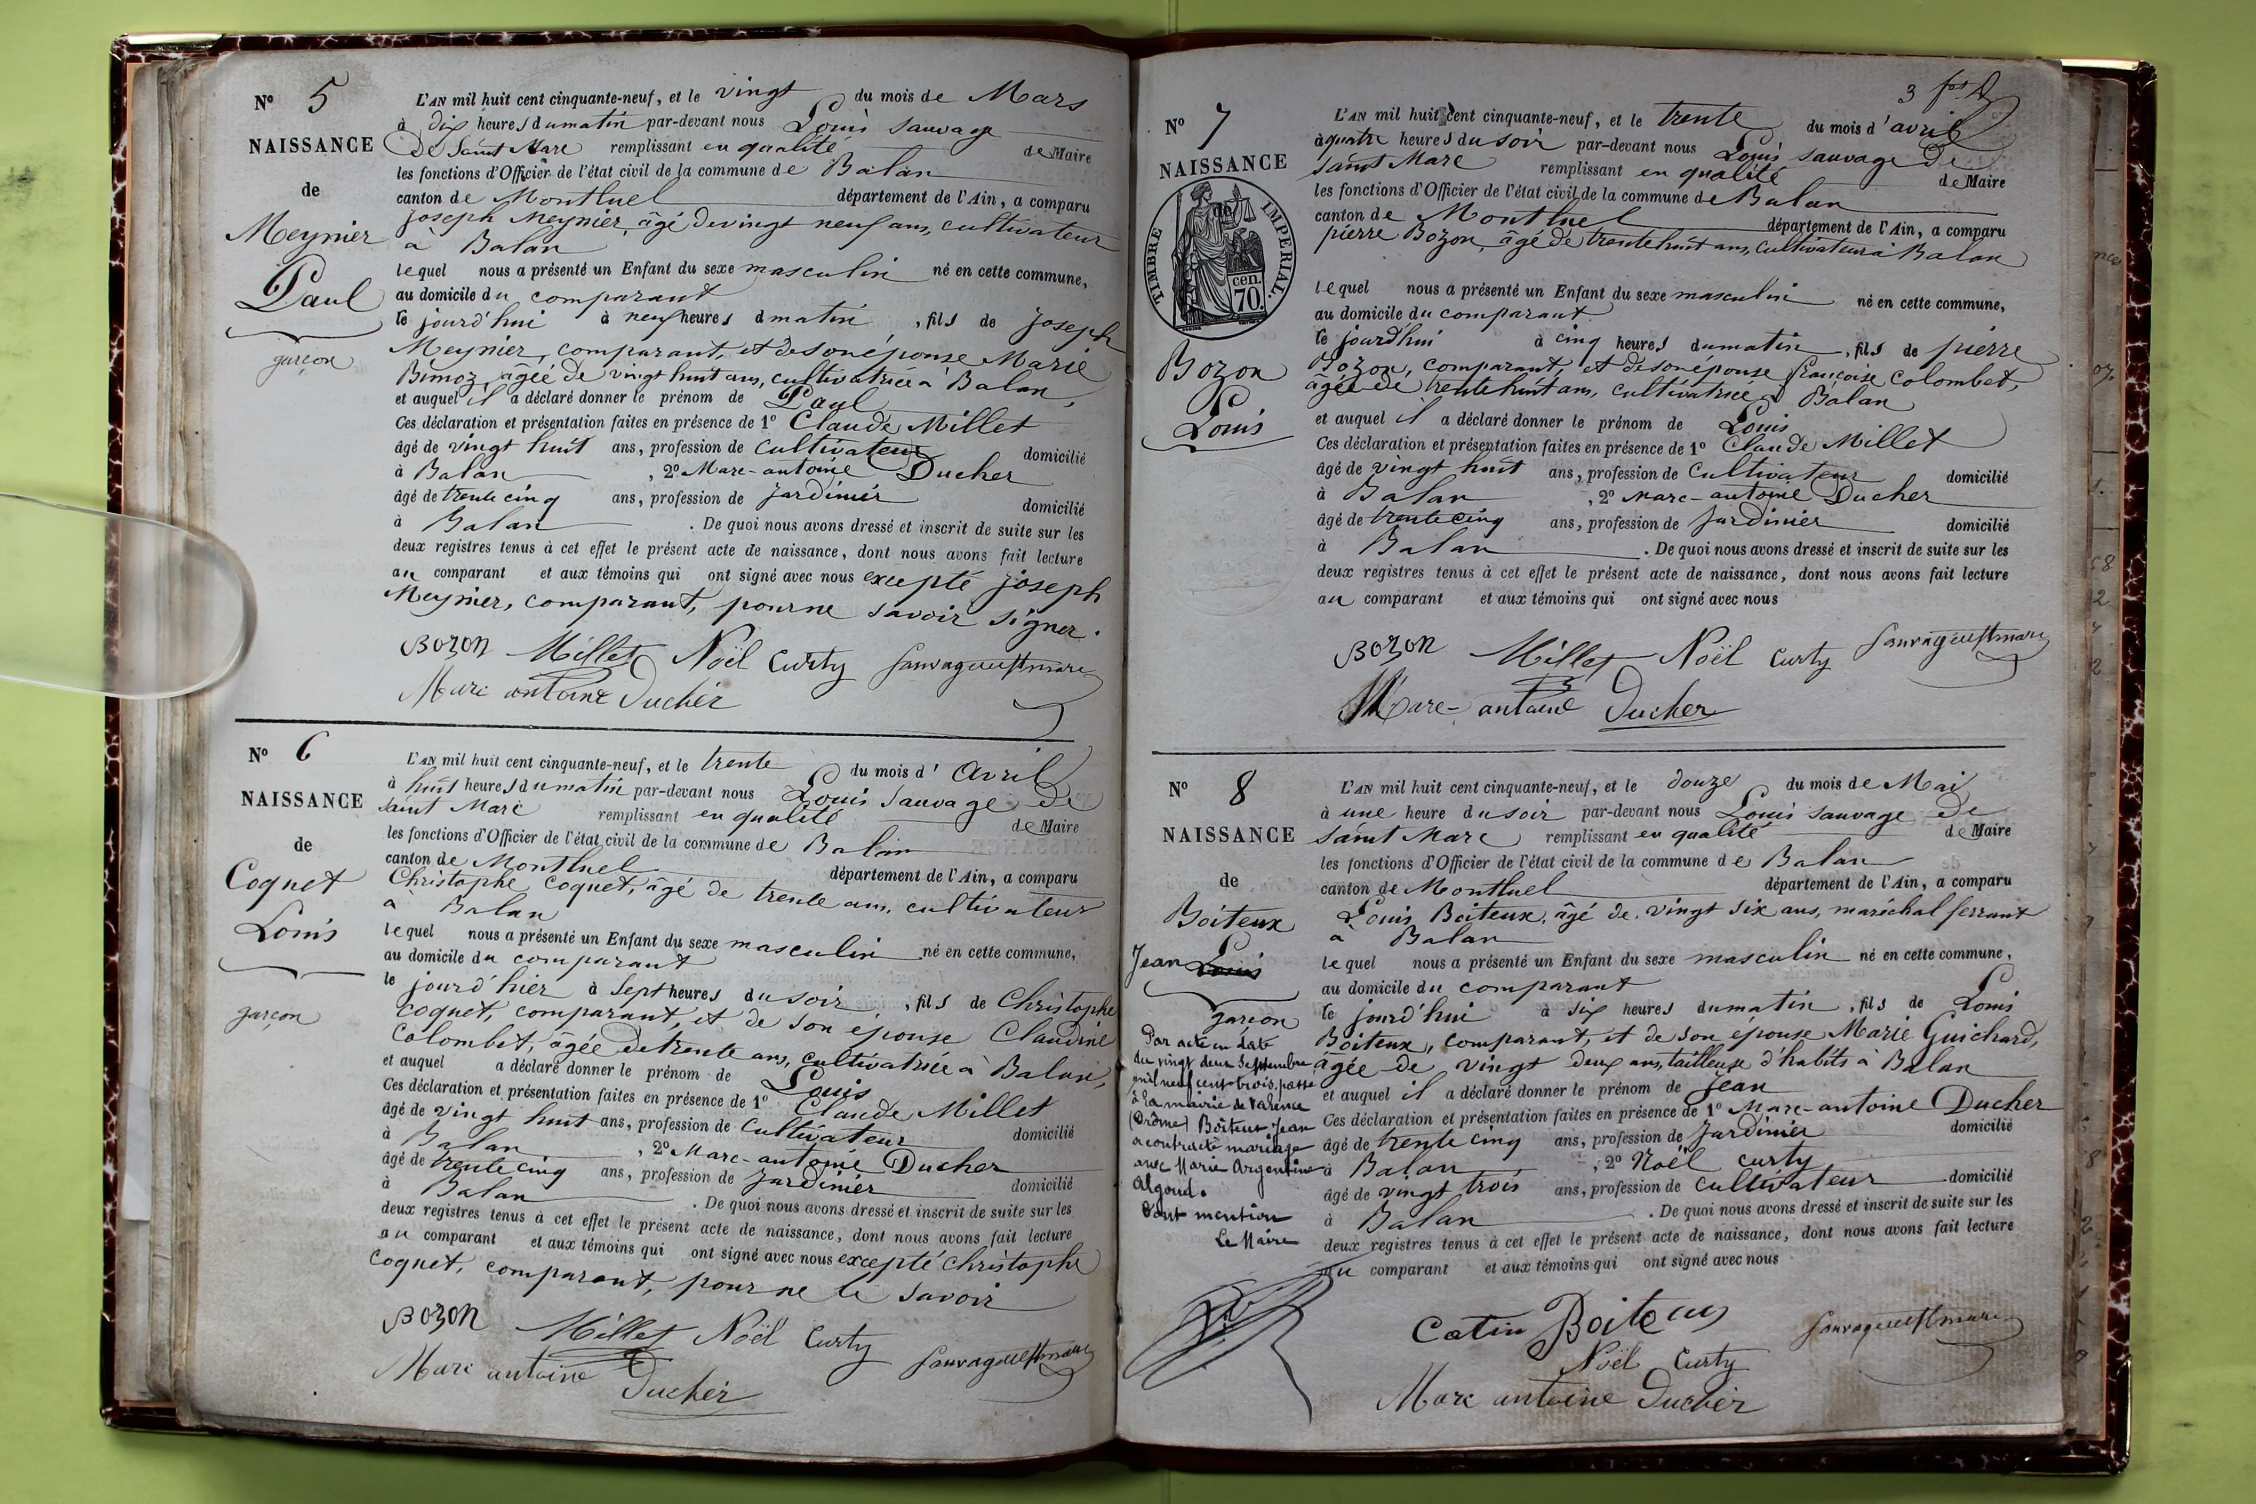 N° 5
NAISSANCE
de
Meynier
Paul
garçon
L'AN mil huit cent cinquante-neuf, et le vingt du mois de Mars
à dix heures du matin par-devant nous Louis Sauvage
De Saint Marc remplissant en qualité de Maire
les fonctions d'Officier de l'état civil de la commune de Balan
canton de Montluel département de l'Ain, a comparu
Joseph Meynier, âgé de vingt neuf ans, cultivateur
à Balan
lequel nous a présenté un Enfant du sexe masculin né en cette commune,
au domicile du comparant
le jourd'hui à neuf heures d matin, fils de Joseph
Meynier, comparant, et de son épouse Marie
Bimoz, âgée de vingt huit ans, cultivatrice à Balan,
et auquel il a déclaré donner le prénom de Paul
Ces déclaration et présentation faites en présence de 1° Claude Millet
âgé de vingt huit ans, profession de cultivateur domicilié
à Balan, 2° Marc-antoine Ducher
âgé de trente cinq ans, profession de jardinier domicilié
à Balan. De quoi nous avons dressé et inscrit de suite sur les
deux registres tenus à cet effet le présent acte de naissance, dont nous avons fait lecture
au comparant et aux témoins qui ont signé avec nous excepté joseph
Meynier, comparant, pour ne savoir signer.
Bozon Millet Noël Curty Sauvage de St marc
Marc antoine Ducher
N° 6
NAISSANCE
de
Coquet
Louis
garçon
L'AN mil huit cent cinquante-neuf, et le trente du mois d'Avril
à huit heures du matin par-devant nous Louis Sauvage De
Saint Marc remplissant en qualité de Maire
les fonctions d'Officier de l'état civil de la commune de Balan
canton de Montluel département de l'Ain, a comparu
Christophe Coquet, âgé de trente ans, cultivateur
à Balan
lequel nous a présenté un Enfant du sexe masculin né en cette commune,
au domicile du comparant
le jourd'hier à sept heures du soir, fils de Christophe
Coquet, comparant, et de son épouse Claudine
Colombet, âgée de trente ans, cultivatrice à Balan,
et auquel a déclaré donner le prénom de Louis
Ces déclaration et présentation faites en présence de 1° Claude Millet
âgé de vingt huit ans, profession de cultivateur domicilié
à Balan, 2° Marc-antoine Ducher
âgé de trente cinq ans, profession de jardinier domicilié
à Balan. De quoi nous avons dressé et inscrit de suite sur les
deux registres tenus à cet effet le présent acte de naissance, dont nous avons fait lecture
au comparant et aux témoins qui ont signé avec nous excepté christophe
Coquet, comparant, pour ne le savoir
Bozon Millet Noël Curty Sauvage de St marc
Marc antoine Ducher
3
N° 7
NAISSANCE
de
TIMBRE IMPERIAL.
70 cen.
Bozon
Louis
L'AN mil huit cent cinquante-neuf, et le trente du mois d'avril
à quatre heures du soir par-devant nous Louis Sauvage De
Saint Marc remplissant en qualité de Maire
les fonctions d'Officier de l'état civil de la commune de Balan
canton de Montluel département de l'Ain, a comparu
pierre Bozon, âgé de trente huit ans, cultivateur à Balan
lequel nous a présenté un Enfant du sexe masculin né en cette commune,
au domicile du comparant
le jourd'hui à cinq heures du matin, fils de pierre
Bozon, comparant, et de son épouse françoise Colombet,
âgée de trente huit ans, cultivatrice à Balan
et auquel il a déclaré donner le prénom de Louis
Ces déclaration et présentation faites en présence de 1° Claude Millet
âgé de vingt huit ans, profession de cultivateur domicilié
à Balan, 2° Marc-antoine Ducher
âgé de trente cinq ans, profession de jardinier domicilié
à Balan. De quoi nous avons dressé et inscrit de suite sur les
deux registres tenus à cet effet le présent acte de naissance, dont nous avons fait lecture
au comparant et aux témoins qui ont signé avec nous
Bozon Millet Noël Curty Sauvage de St marc
Marc-antoine Ducher
N° 8
NAISSANCE
de
Boiteux
Jean Louis
garçon
Par acte en date
du vingt deux Septembre
mil neuf cent trois, passé
à la mairie de Valence
(Drôme) Boiteux Jean
a contracté mariage
avec Marie Argentine
Algoud.
Dont mention
Le Maire
L'AN mil huit cent cinquante-neuf, et le douze du mois de Mai
à une heure du soir par-devant nous Louis Sauvage De
Saint Marc remplissant en qualité de Maire
les fonctions d'Officier de l'état civil de la commune de Balan
canton de Montluel département de l'Ain, a comparu
Louis Boiteux, âgé de vingt six ans, maréchal ferrant
à Balan
lequel nous a présenté un Enfant du sexe masculin né en cette commune,
au domicile du comparant
le jourd'hui à six heures du matin, fils de Louis
Boiteux, comparant, et de son épouse Marie Guichard,
âgée de vingt deux ans, tailleuse d'habits à Balan
et auquel il a déclaré donner le prénom de Jean
Ces déclaration et présentation faites en présence de 1° Marc-antoine Ducher
âgé de trente cinq ans, profession de jardinier domicilié
à Balan, 2° Noël Curty
âgé de vingt trois ans, profession de cultivateur domicilié
à Balan. De quoi nous avons dressé et inscrit de suite sur les
deux registres tenus à cet effet le présent acte de naissance, dont nous avons fait lecture
au comparant et aux témoins qui ont signé avec nous
Catin Boiteux Sauvage de St marc
Noël Curty
Marc antoine Ducher